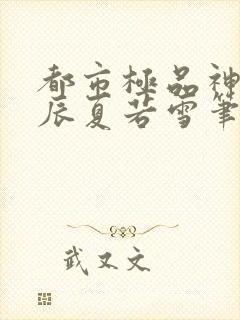 都市極品神
辰夏若雪筆
武又文